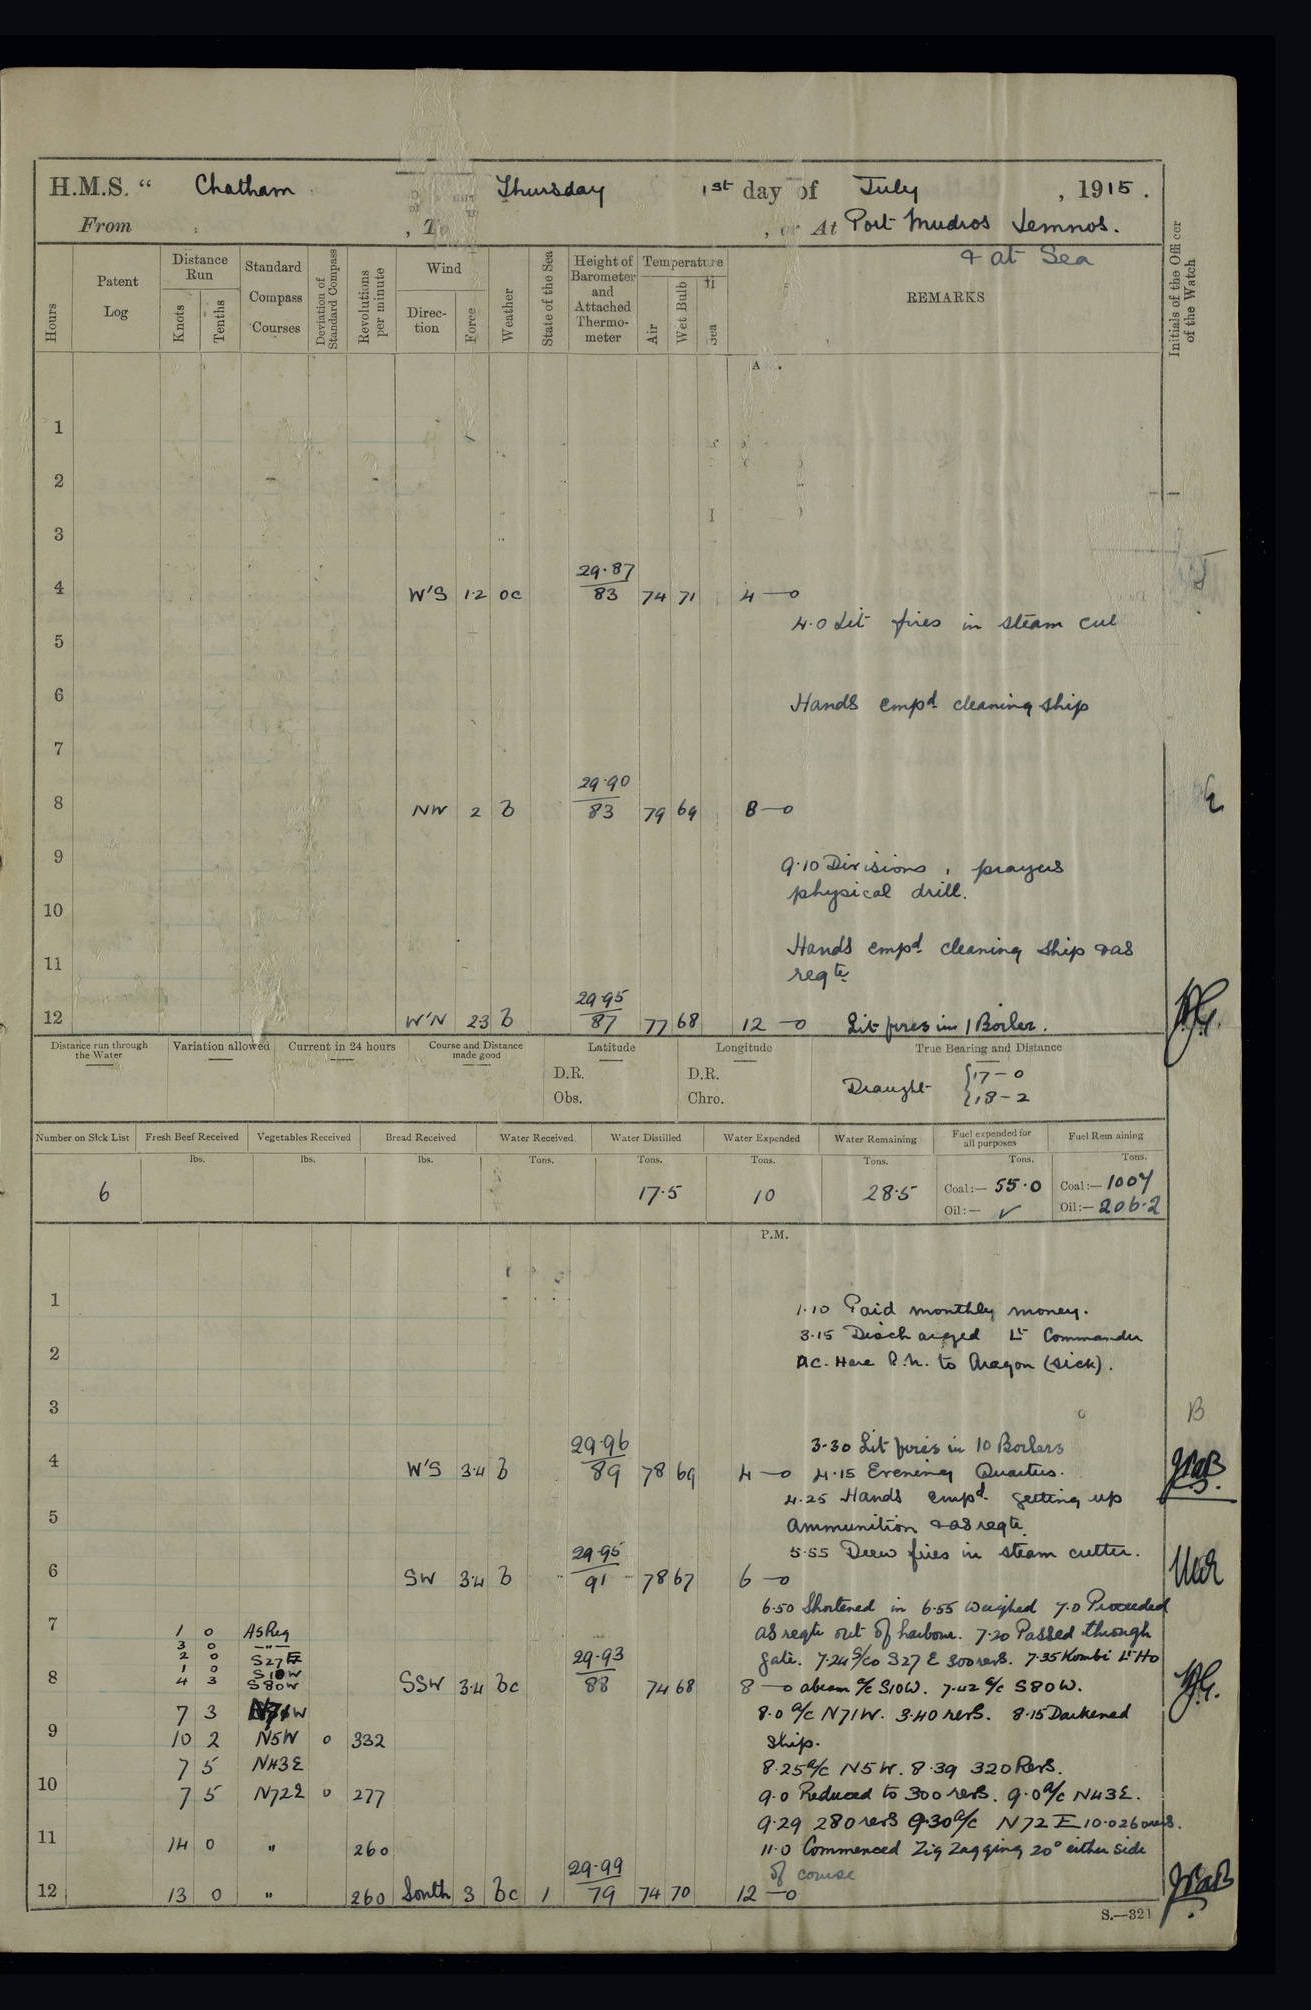 H.M.S. “ Chatham Thursday 1st day of July , 1915 .
From , To , or At Port Mudros Lemnos.
& at Sea
Hours
Patent Log
Distance Run
Knots
Tenths
Standard Compass Courses
Deviation of Standard Compass
Revolutions per minute
Wind
Direc-tion
Force
Weather
State of the Sea
Height of Barometer and Attached Thermo-meter
Temperature
Air
Wet Bulb
Sea
REMARKS
Initials of the Officer of the Watch
A
1
2
3
29.87
4 W'S 1.2 oc 83 74 71 4—0
4.0 Lit fires in steam cut
5
6 Hands empd cleaning ship
7
29.90
8 NW 2 b 83 79 69 8—0
9 9.10 Divisions, prayers
physical drill.
10
Hands empd cleaning ship & as
11 reqte
29.95
12 W'N 23 b 87 77 68 12—0 Lit fires in 1 Boiler.
Distance run through the Water
Variation allowed
Current in 24 hours
Course and Distance made good
Latitude
D.R.
Obs.
Longitude
D.R.
Chro.
True Bearing and Distance
Draught {17—0
{18—2
Number on Sick List
Fresh Beef Received
Vegetables Received
Bread Received
Water Received
Water Distilled
Water Expended
Water Remaining
Fuel expended for all purposes
Fuel Remaining
lbs. lbs. lbs. Tons. Tons. Tons. Tons. Tons. Tons.
6 17.5 10 28.5 Coal:— 55.0 Coal:— 1007
Oil:— ✓ Oil:— 206.2
P.M.
1 1.10 Paid monthly money.
3.15 Discharged Lt Commander
2 A.C. Hare R.N. to Aragon (sick).
3
B
29.96 3.30 Lit fires in 10 Boilers
4 W'S 3.4 b 89 78 69 4—0 4.15 Evening Quarters.
4.25 Hands empd getting up
5 Ammunition & as reqte
29.95 5.55 Drew fires in steam cutter.
6 SW 3.4 b 91 78 67 6—0
6.50 Shortened in 6.55 Weighed 7.0 Proceeded
7 1 0 As Req as reqte out of harbour. 7.20 Passed through
3 0 —"—
2 0 S27E 29.93 gate. 7.24 S/Co S27E 300 revs. 7.35 Kombi Lt Ho
1 0 S10W
8 4 3 S80W SSW 3.4 bc 88 74 68 8—0 abeam a/c S10W. 7.42 a/c S80W.
7 3 N71W 8.0 a/c N71W. 340 revs. 8.15 Darkened
9 10 2 N5W 0 332 ship.
7 5 N43E 8.25 a/c N5W. 8.39 320 Revs.
10 7 5 N72E 0 277 9.0 Reduced to 300 revs. 9.0 a/c N43E.
9.29 280 revs 9.30 a/c N72E 10.0 260 revs.
11 14 0 " 260 11.0 Commenced Zig Zagging 20° either side
29.99 of course
12 13 0 " 260 South 3 bc 1 79 74 70 12—0
S.—321